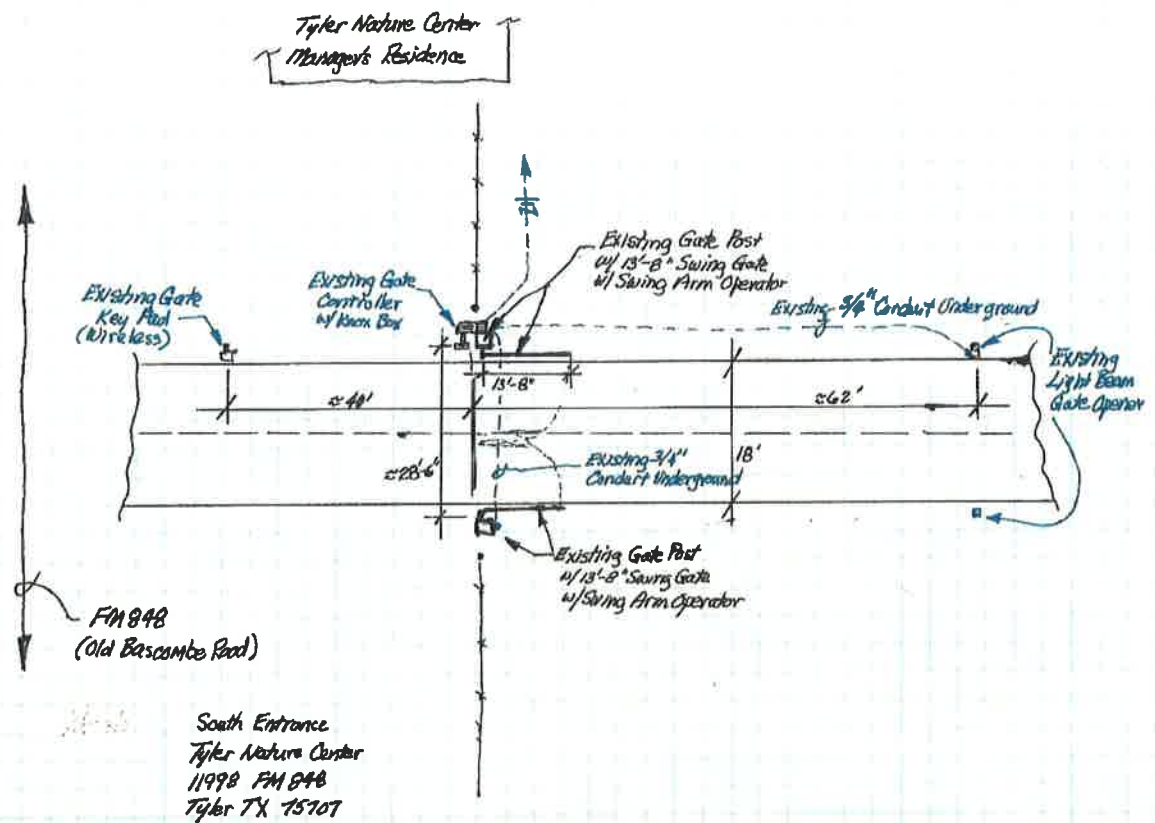 Tyler Nature Center
Manager's Residence
Existing Gate Post
w/ 13'-8" Swing Gate
w/ Swing Arm Operator
Existing Gate
Controller
w/ Knox Box
Existing Gate
Key Pad
(Wireless)
Existing 3/4" Conduit Underground
Existing
Light Beam
Gate Opener
13'-8"
≈40'
≈62'
≈28'-6"
18'
Existing 3/4"
Conduit Underground
Existing Gate Post
w/ 13'-8" Swing Gate
w/ Swing Arm Operator
FM 848
(Old Bascombe Road)
South Entrance
Tyler Nature Center
11998 FM 848
Tyler TX 75707